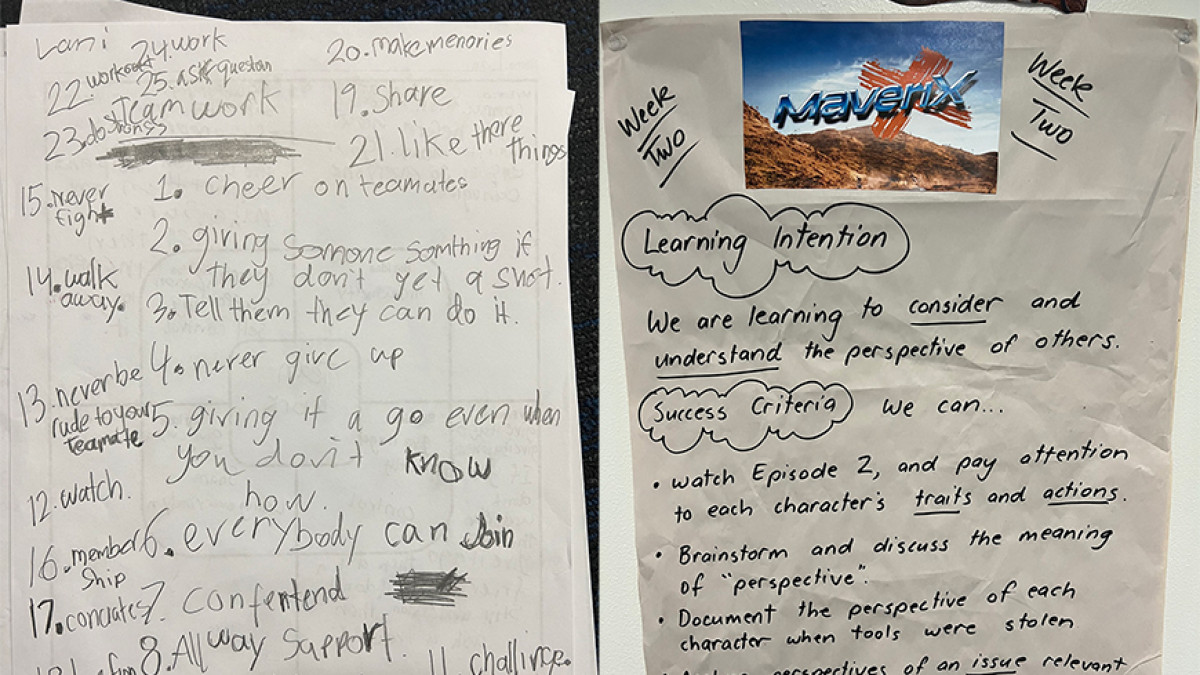 Lani
24. work
20. make menories
22. workout
25. ask questan
Teamwork
19. Share
23. do
21. like there
things
1. cheer on teamates
15. never
fight
2. giving somone somthing if
they don't get a shot.
14. walk
away.
3. Tell them they can do it.
4. never give up
13. never be
rude to your
teamate
5. giving it a go even when
you don't know
how.
12. watch.
6. everybody can Join
16. member
Ship
7. confertend
17.
8. Allway Support.
11. challinge.
MaveriX
Week
Two
Week
Two
Learning Intention
We are learning to consider and
understand the perspective of others.
Success Criteria We can...
• watch Episode 2, and pay attention
to each character's traits and actions.
• Brainstorm and discuss the meaning
of "perspective".
• Document the perspective of each
character when tools were stolen
perspectives of an issue relevant